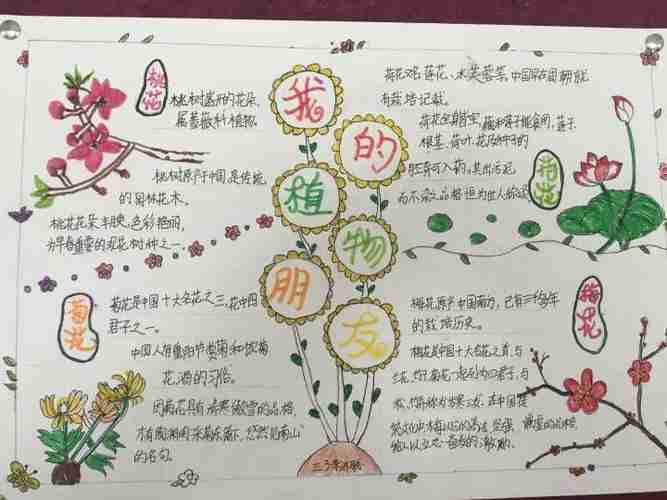 我的植物朋友
桃花
桃树盛开的花朵,
属蔷薇科植物.
桃树原产于中国,是传统
的园林花木。
桃花花朵丰腴,色彩艳丽,
为早春重要的观花树种之一。
荷花
荷花又名莲花、水芙蓉等,中国早在周朝就
有栽培记载。
荷花全身皆宝,藕和莲子能食用,莲子、
根茎、荷叶、花及种子的
胚芽可入药。其出污泥
而不染之品格恒为世人称颂
菊花
菊花是中国十大名花之三,花中四
君子之一。
中国人有重阳节赏菊和饮菊
花酒的习俗。
因菊花具有清寒傲雪的品格,
才有陶渊明"采菊东篱下,悠然见南山"
的名句。
梅花
梅花原产中国南方,已有三千多年
的栽培历史。
梅花是中国十大名花之首,与
兰花、竹子、菊花一起列为四君子,与
松、竹并称为岁寒三友。在中国传
统文化中梅以它的高洁、坚强、谦虚的品格,
给人以立志奋发的激励。